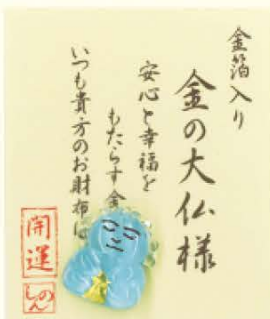 金箔入り
金の大仏様
安心と幸福を
もたらす金
いつも貴方のお財布に
開運